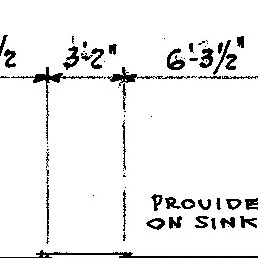 /2 3'-2" 6'-3½"
PROVIDE
ON SINK